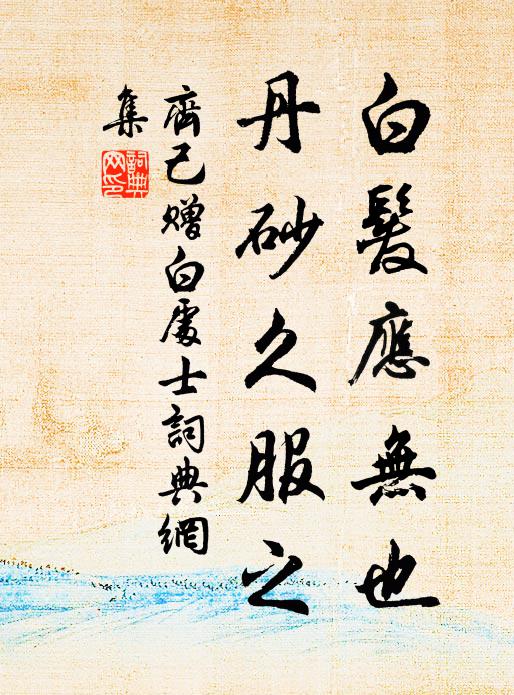 白髮應無也
丹砂久服之
齊己贈白處士詞典網
集
詞典
网印